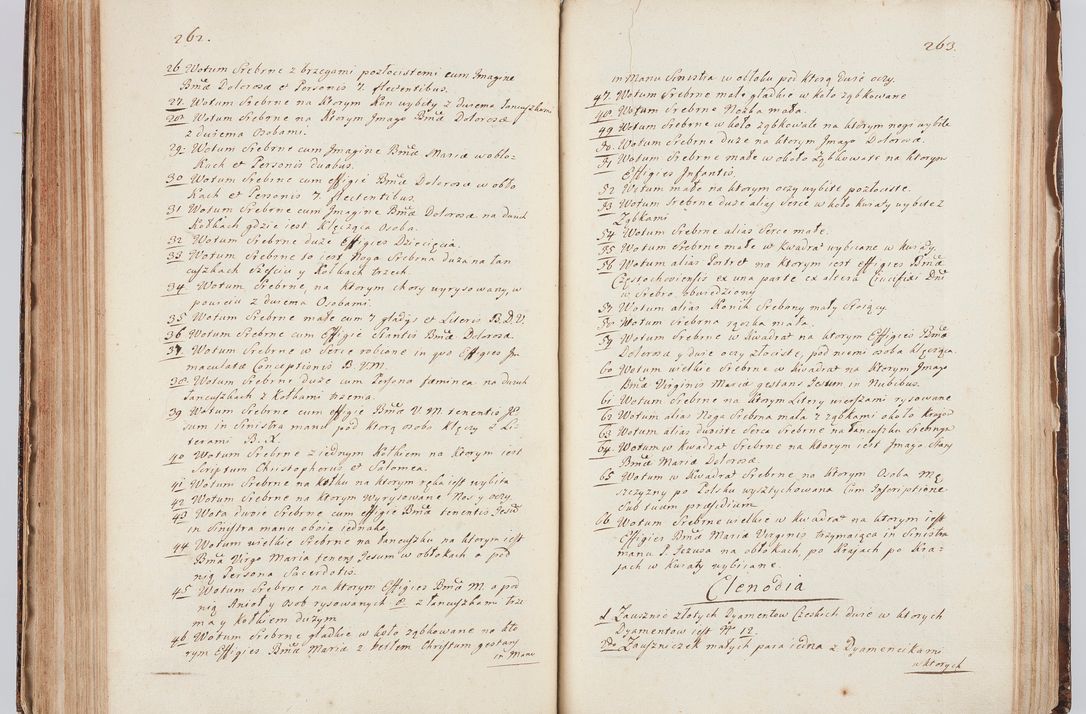 262.
26 Wotum Srebrne z brzegami pozłocistemi cum Imagine
Bmæ Dolorosæ et Personis 7. flectentibus.
27. Wotum Srebrne na Ktorym Kon wybity z dwiema łancuszkami
28. Wotum Srebrne na Ktorym Imago Bmæ Dolorosæ
z dwiema Osobami.
29. Wotum Srebrne cum Imagine Bmæ Mariæ w obło-
kach et Personis duabus.
30 Wotum Srebrne cum effigie Bmæ Dolorosæ w obło
Kach et Personis 7. flectentibus.
31 Wotum Srebrne cum Imagine Bmæ Dolorosæ na dwuch
Kołkach gdzie iest Klęcząca Osoba.
32 Wotum Srebrne duże Effigies Dziecięcia.
33 Wotum Srebrne to iest Noga Srebrna duża na łan
cuszkach Sześciu y Kołkach trzech.
34. Wotum Srebrne, na ktorym chory wyrysowany, w
poscieli z dwiema Osobami.
35 Wotum Srebrne małe cum 7 gladys et Literis B. D. V.
36 Wotum Srebrne cum Effigie Stantis Bmæ Dolorosæ.
37 Wotum Srebrne w Serce robione in quo Effigies Im
maculatæ Conceptionis B. V. M.
38. Wotum Srebrne duże cum Persona fæminea na dwuch
łancuszkach z Kołkami trzema.
39 Wotum Srebrne cum effigie Bmæ V. M. tenentis Je
sum in Sinistra manu pod ktorą osoba Klęczy z Li-
terami B. X.
40 Wotum Srebrne z iednym Kołkiem na Ktorym iest
Scriptum Christophorus et Salomea.
41 Wotum Srebrne na kołku na ktorym ręka iest wybita
42 Wotum Srebrne na ktorym wyrysowane Nos y oczy.
43 Wota dwoie Srebrne cum effigie Bmæ tenentis Jesu
in Sinistra manu oboie iednako.
44 Wotum wielkie Srebrne na łancuszku na ktorym iest
Bma Virgo Maria tenens Jesum w obłokach a pod
nią Persona Sacerdotis.
45 Wotum Srebrne na ktorym Effigies Bmæ M. a pod
nią Anioł y Osob rysowanych 8. z łancuszkami trze
ma y kołkiem dużym
46 Wotum Srebrne gładkie w koło ząbkowane na kto
rym Effigies Bmæ Mariæ z berłem Christum gestans
in Manu
263.
in Manu Sinistra w obłoku pod ktorą dwie oczy.
47. Wotum Srebrne małe gładkie w koło ząbkowane
48 Wotum Srebrne Nożka mała.
49 Wotum Srebrne w koło ząbkowate na ktorym nogi wybite
50. Wotum Srebrne duże na ktorym Imago Dolorosæ.
51 Wotum Srebrne małe w około Ząbkowate na ktorym
Effigies Infantis.
52 Wotum małe na ktorym oczy wybite pozłociste.
53 Wotum Srebrne duże alias Serce w koło kwiaty wybite z
Ząbkami
54. Wotum Srebrne alias Serce małe.
55 Wotum Srebrne małe w Kwadrat wybijane w kwiaty.
56 Wotum alias Portret na ktorym iest effigies Bmæ
Częstochoviensis ex una parte ex altera Crucifixi Dni
w Srebro
57 Wotum alias Konik Srebrny mały Stoiący.
58 Wotum Srebrne rączka mała.
59 Wotum Srebrne w Kwadrat na ktorym Effigies Bmæ
Dolorosæ y dwie oczy złociste, pod niemi osoba klęcząca.
60 Wotum wielkie Srebrne w kwadrat na Ktorym Imago
Bmæ Virginis Mariæ gestans Jesum in Nubibus.
61 Wotum Srebrne na Ktorym Litery wierszami rysowane
62 Wotum alias Noga Srebrna mała z ząbkami około Krajów
63 Wotum alias dwoiste Serce Srebrne na łancuszku Srebrnym
64. Wotum w Kwadrat Srebrne na ktorym iest Imago Stans
Bmæ Mariæ Dolorosæ.
65 Wotum w Kwadrat Srebrne na ktorym Osoba Mę
szczyzny po Polsku wysztychowana Cum Inscriptione
Sub tuum præsidium.
66 Wotum Srebrne wielkie w Kwadrat na ktorym iest
Effigies Bmæ Mariæ Virginis trzymaiąca in Sinistra
manu P. Jezusa na obłokach, po Krajach po Kra-
jach w Kwiaty wybijane.
Clenodia
1 Zausznic złotych Dyamentow Czeskich dwie w ktorych
Dyamentow iest Nr 12.
2do Zauszniczek małych para iedna z Dyamencikami
w ktorych